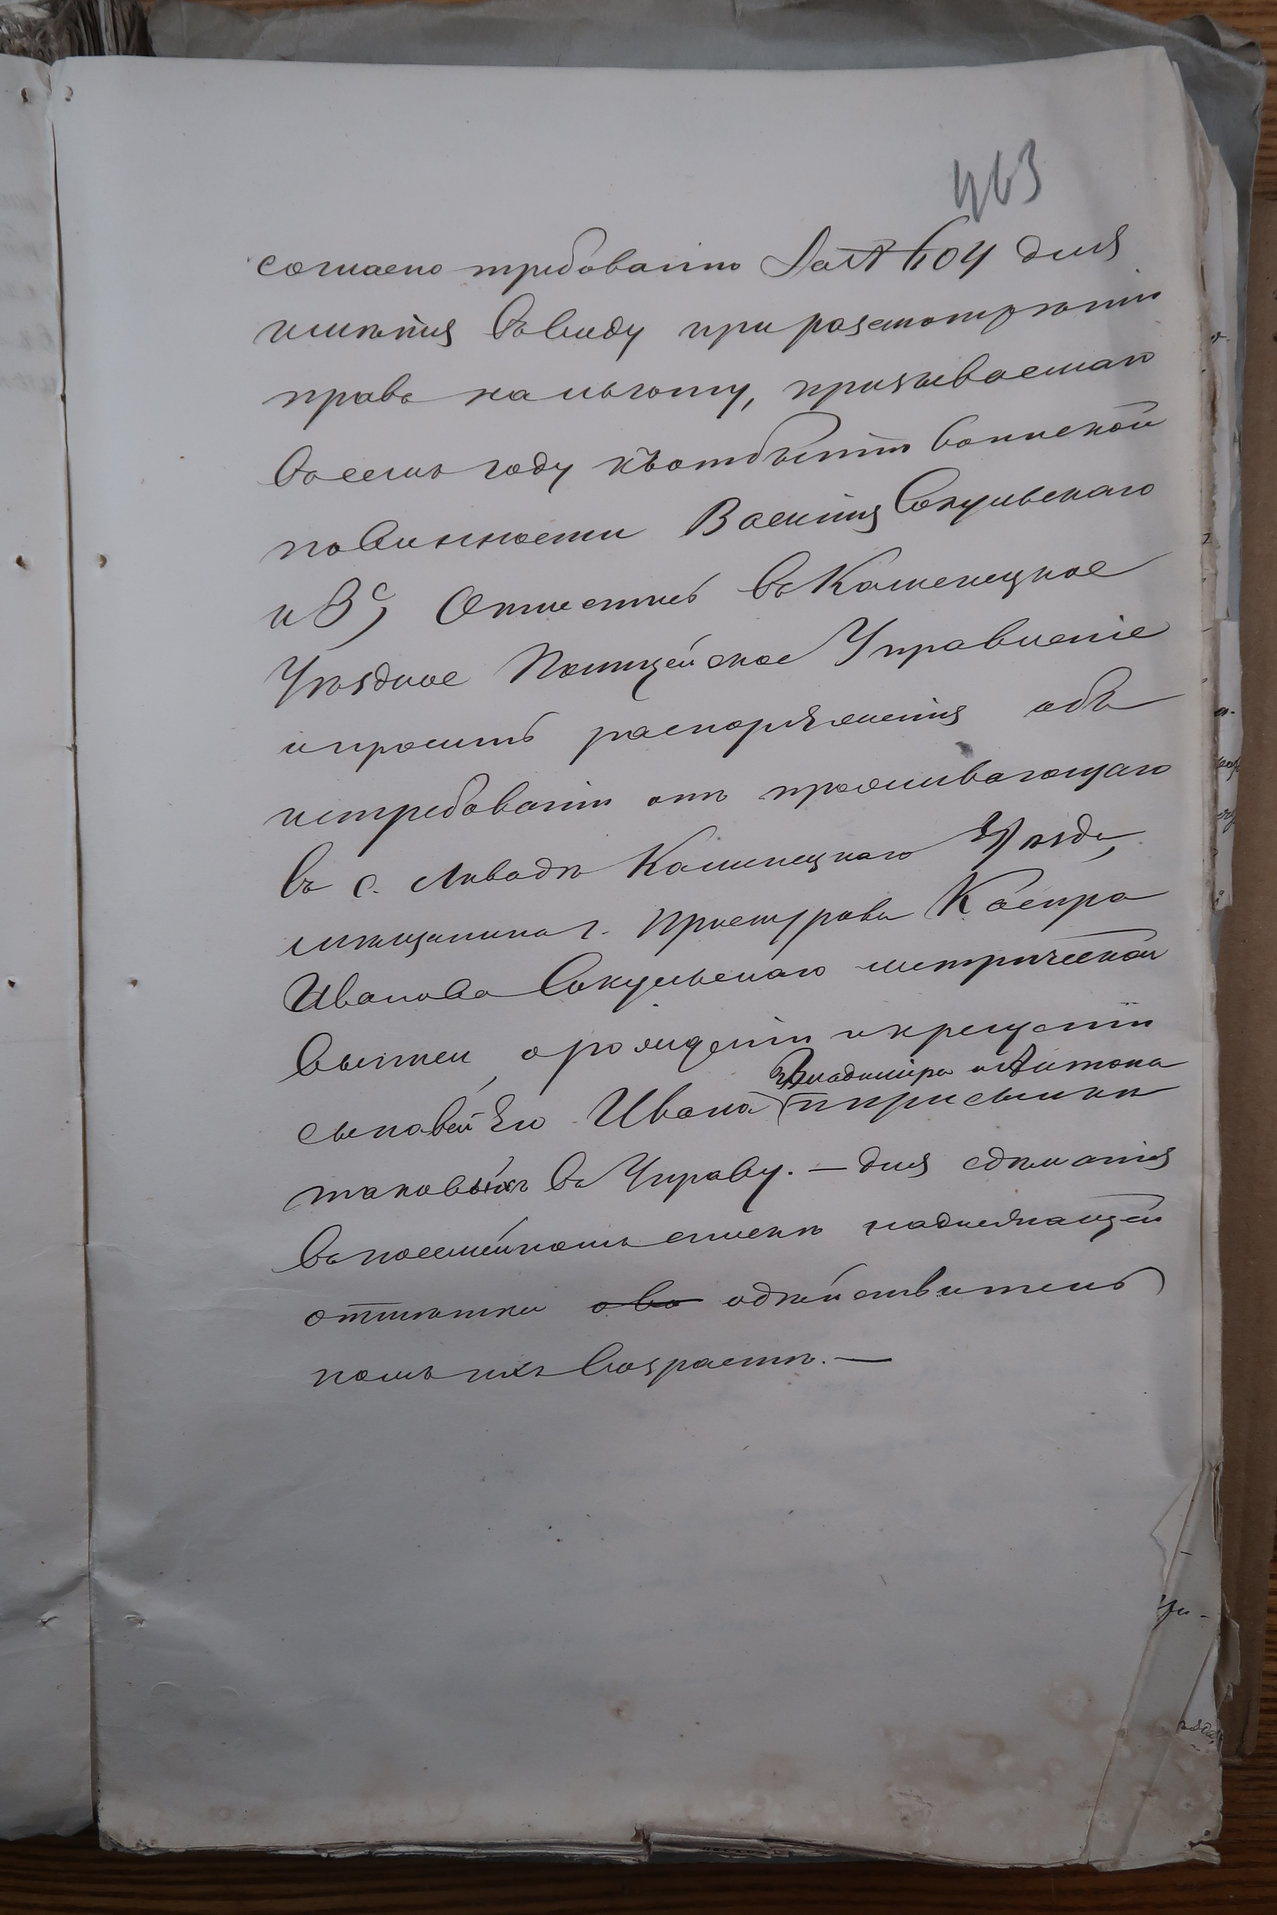 463
согласно требованію за № 604 для
имѣнія въ виду при разсмотрѣніи
права на льготу, призываемаго
въ семъ году къ отбытію воинской
повинности Василія Сокульскаго
и 3) Отнестись въ Каменецкое
Уѣздное Полицейское Управленіе
и просить распоряженія объ
истребованіи отъ проживающаго
въ с. Ливадѣ Каменецкаго Уѣзда,
мѣщанина г. Проскурова Каспра
Иванова Сокульскаго метрической
выписи, о рожденіи и крещеніи
Владиміра и Антона
сыновей его Ивана и присылки
таковыхъ въ Управу. — для сдѣланія
въ посемейномъ спискѣ надлежащей
отмѣтки о во о дѣйствитель
номъ ихъ возрастѣ. —